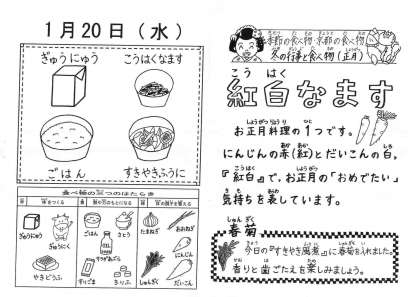 1月20日（水）
ぎゅうにゅう
こうはくなます
ごはん
すきやきふうに
食べ物の三つのはたらき
ぎゅうにゅう
ぎゅうにく
やきどうふ
ごはん
さとう
すりごま
たまねぎ
にんじん
だいこん
季節の食べ物 京都の食べ物
冬の行事と食べ物（正月）
こうはく
紅白なます
お正月料理の1つです。
にんじんの赤（紅）とだいこんの白。
『紅白』で、お正月の「おめでたい」
気持ちを表しています。
しゅんぎく
春菊
今日の『すきやき風煮』に春菊を入れました。
香りと歯ごたえを楽しみましょう。